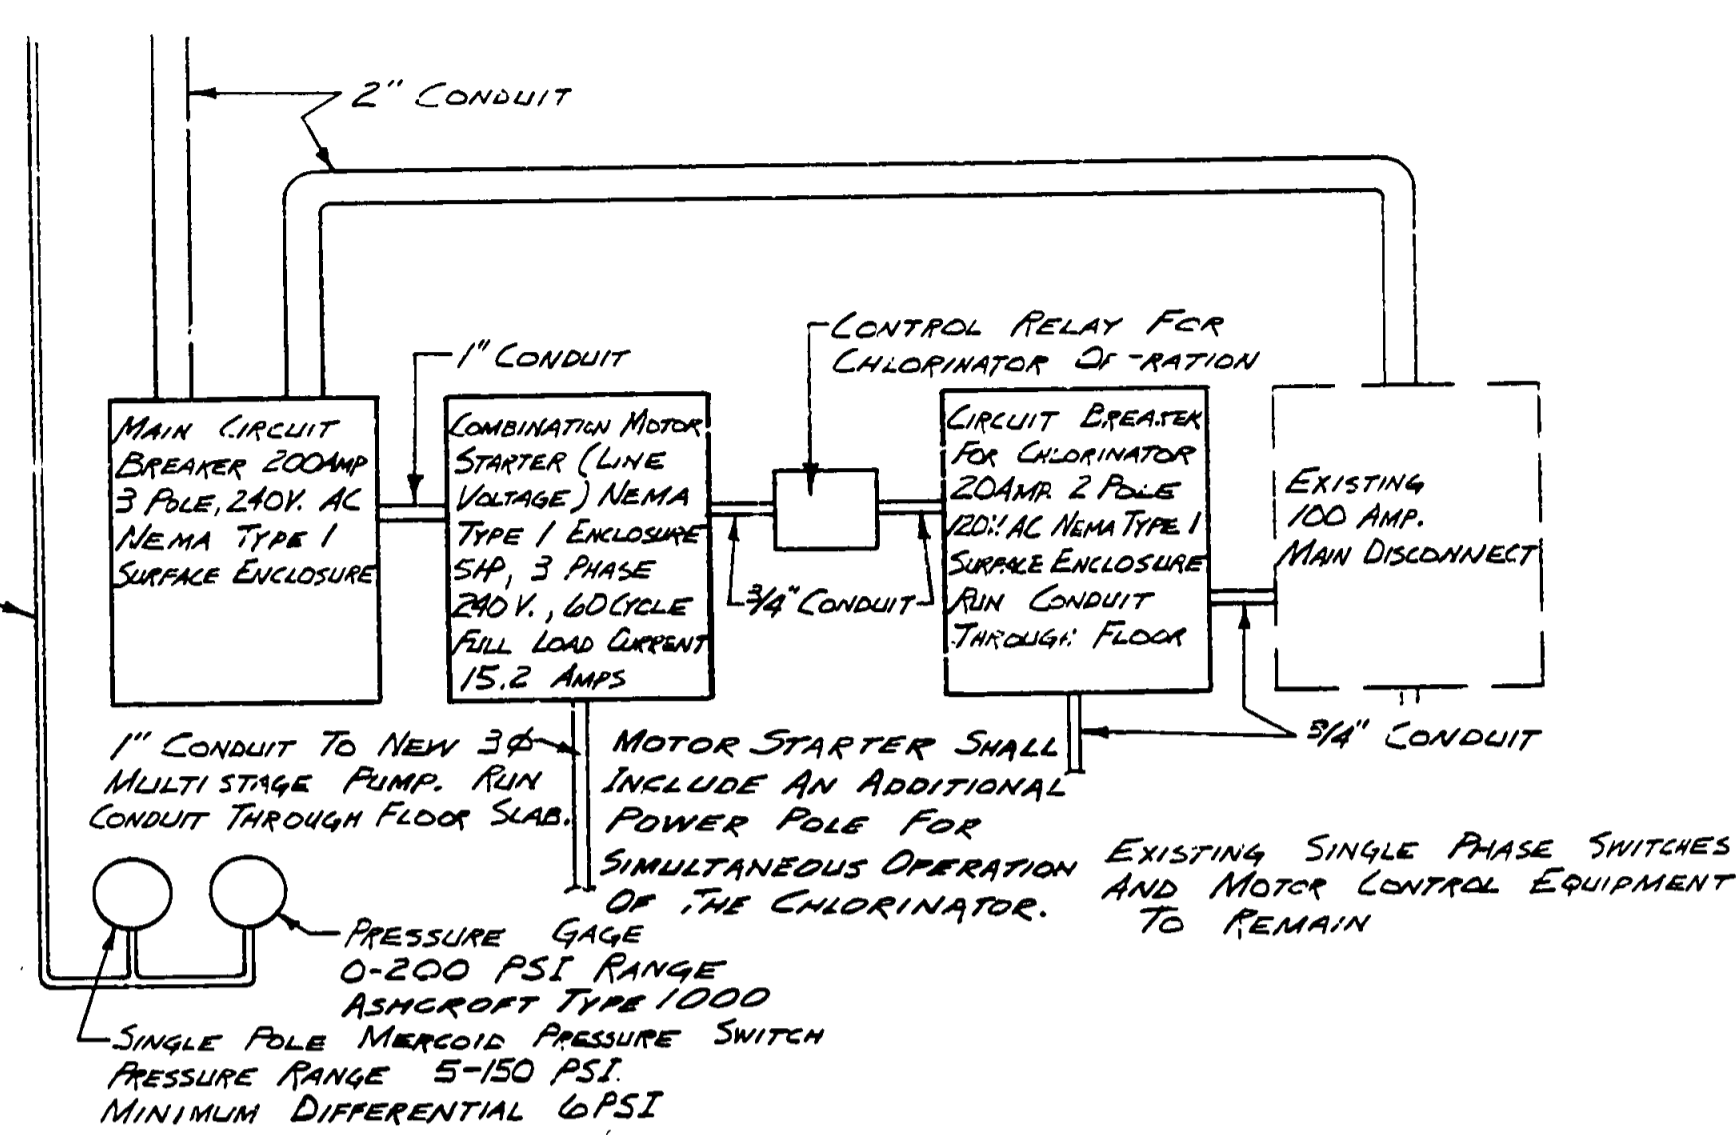 2" CONDUIT
1" CONDUIT
CONTROL RELAY FOR
CHLORINATOR -RATION
MAIN CIRCUIT
BREAKER 200 AMP
3 POLE, 240V. AC
NEMA TYPE 1
SURFACE ENCLOSURE
COMBINATION MOTOR
STARTER (LINE
VOLTAGE) NEMA
TYPE 1 ENCLOSURE
5HP, 3 PHASE
240 V., 60 CYCLE
FULL LOAD CURRENT
15.2 AMPS
3/4" CONDUIT
CIRCUIT BREAKER
FOR CHLORINATOR
20AMP. 2 POLE
120V AC NEMA TYPE 1
SURFACE ENCLOSURE
RUN CONDUIT
THROUGH FLOOR
EXISTING
100 AMP.
MAIN DISCONNECT
1" CONDUIT TO NEW 3Ø
MULTI STAGE PUMP. RUN
CONDUIT THROUGH FLOOR SLAB.
MOTOR STARTER SHALL
INCLUDE AN ADDITIONAL
POWER POLE FOR
SIMULTANEOUS OPERATION
OF THE CHLORINATOR.
3/4" CONDUIT
EXISTING SINGLE PHASE SWITCHES
AND MOTOR CONTROL EQUIPMENT
TO REMAIN
PRESSURE GAGE
0-200 PSI RANGE
ASHCROFT TYPE 1000
SINGLE POLE MERCOID PRESSURE SWITCH
PRESSURE RANGE 5-150 PSI.
MINIMUM DIFFERENTIAL 6 PSI